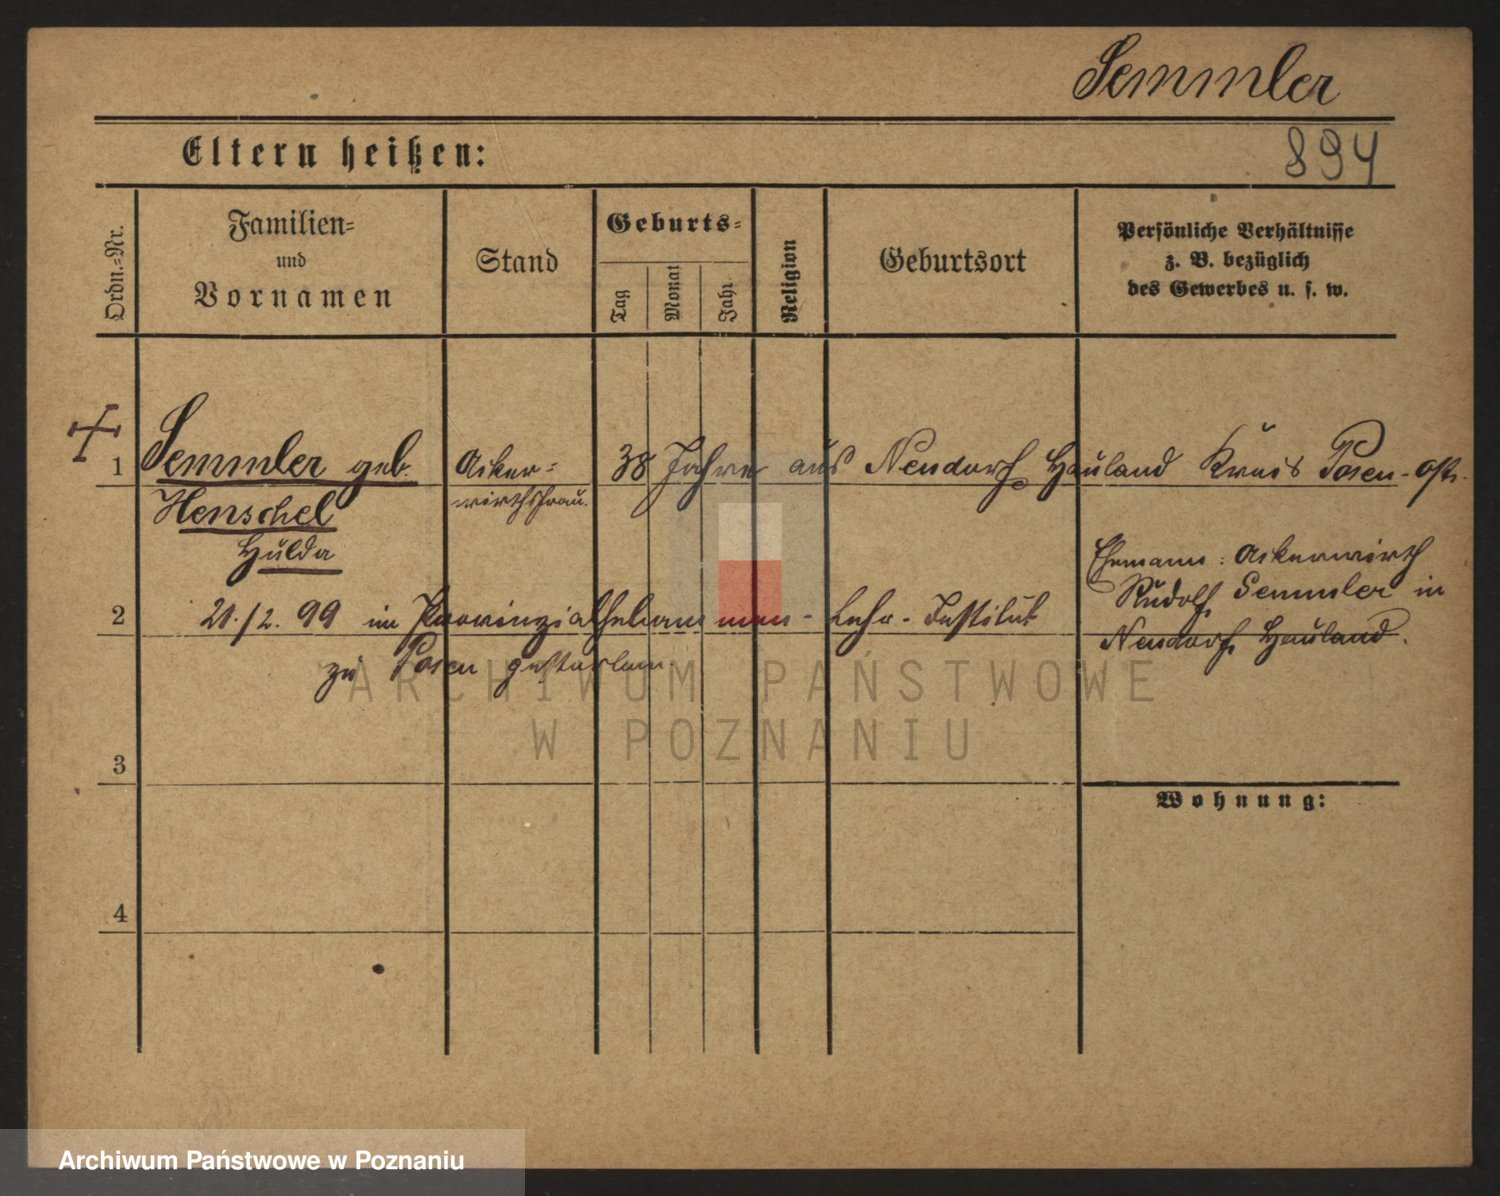 Semmler
894
Eltern heißen:
Ordn.-Nr.
Familien-
und
Vornamen
Stand
Geburts-
Tag
Monat
Jahr
Religion
Geburtsort
Persönliche Verhältnisse
z. B. bezüglich
des Gewerbes u. s. w.
1 Semmler geb. Acker- 38 Jahre aus Neudorf Hauland Kreis Posen-Ost.
Henschel wirthsfrau.
Hulda
Ehemann: Ackerwirth
Rudolf Semmler in
Neudorf Hauland.
2 21./2. 99 im Provinzialhebammen-Lehr-Institut
zu Posen gestorben.
3
4
Wohnung:
ARCHIWUM PAŃSTWOWE
W POZNANIU
Archiwum Państwowe w Poznaniu